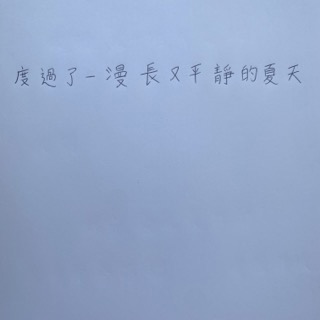 度過了一漫長又平靜的夏天